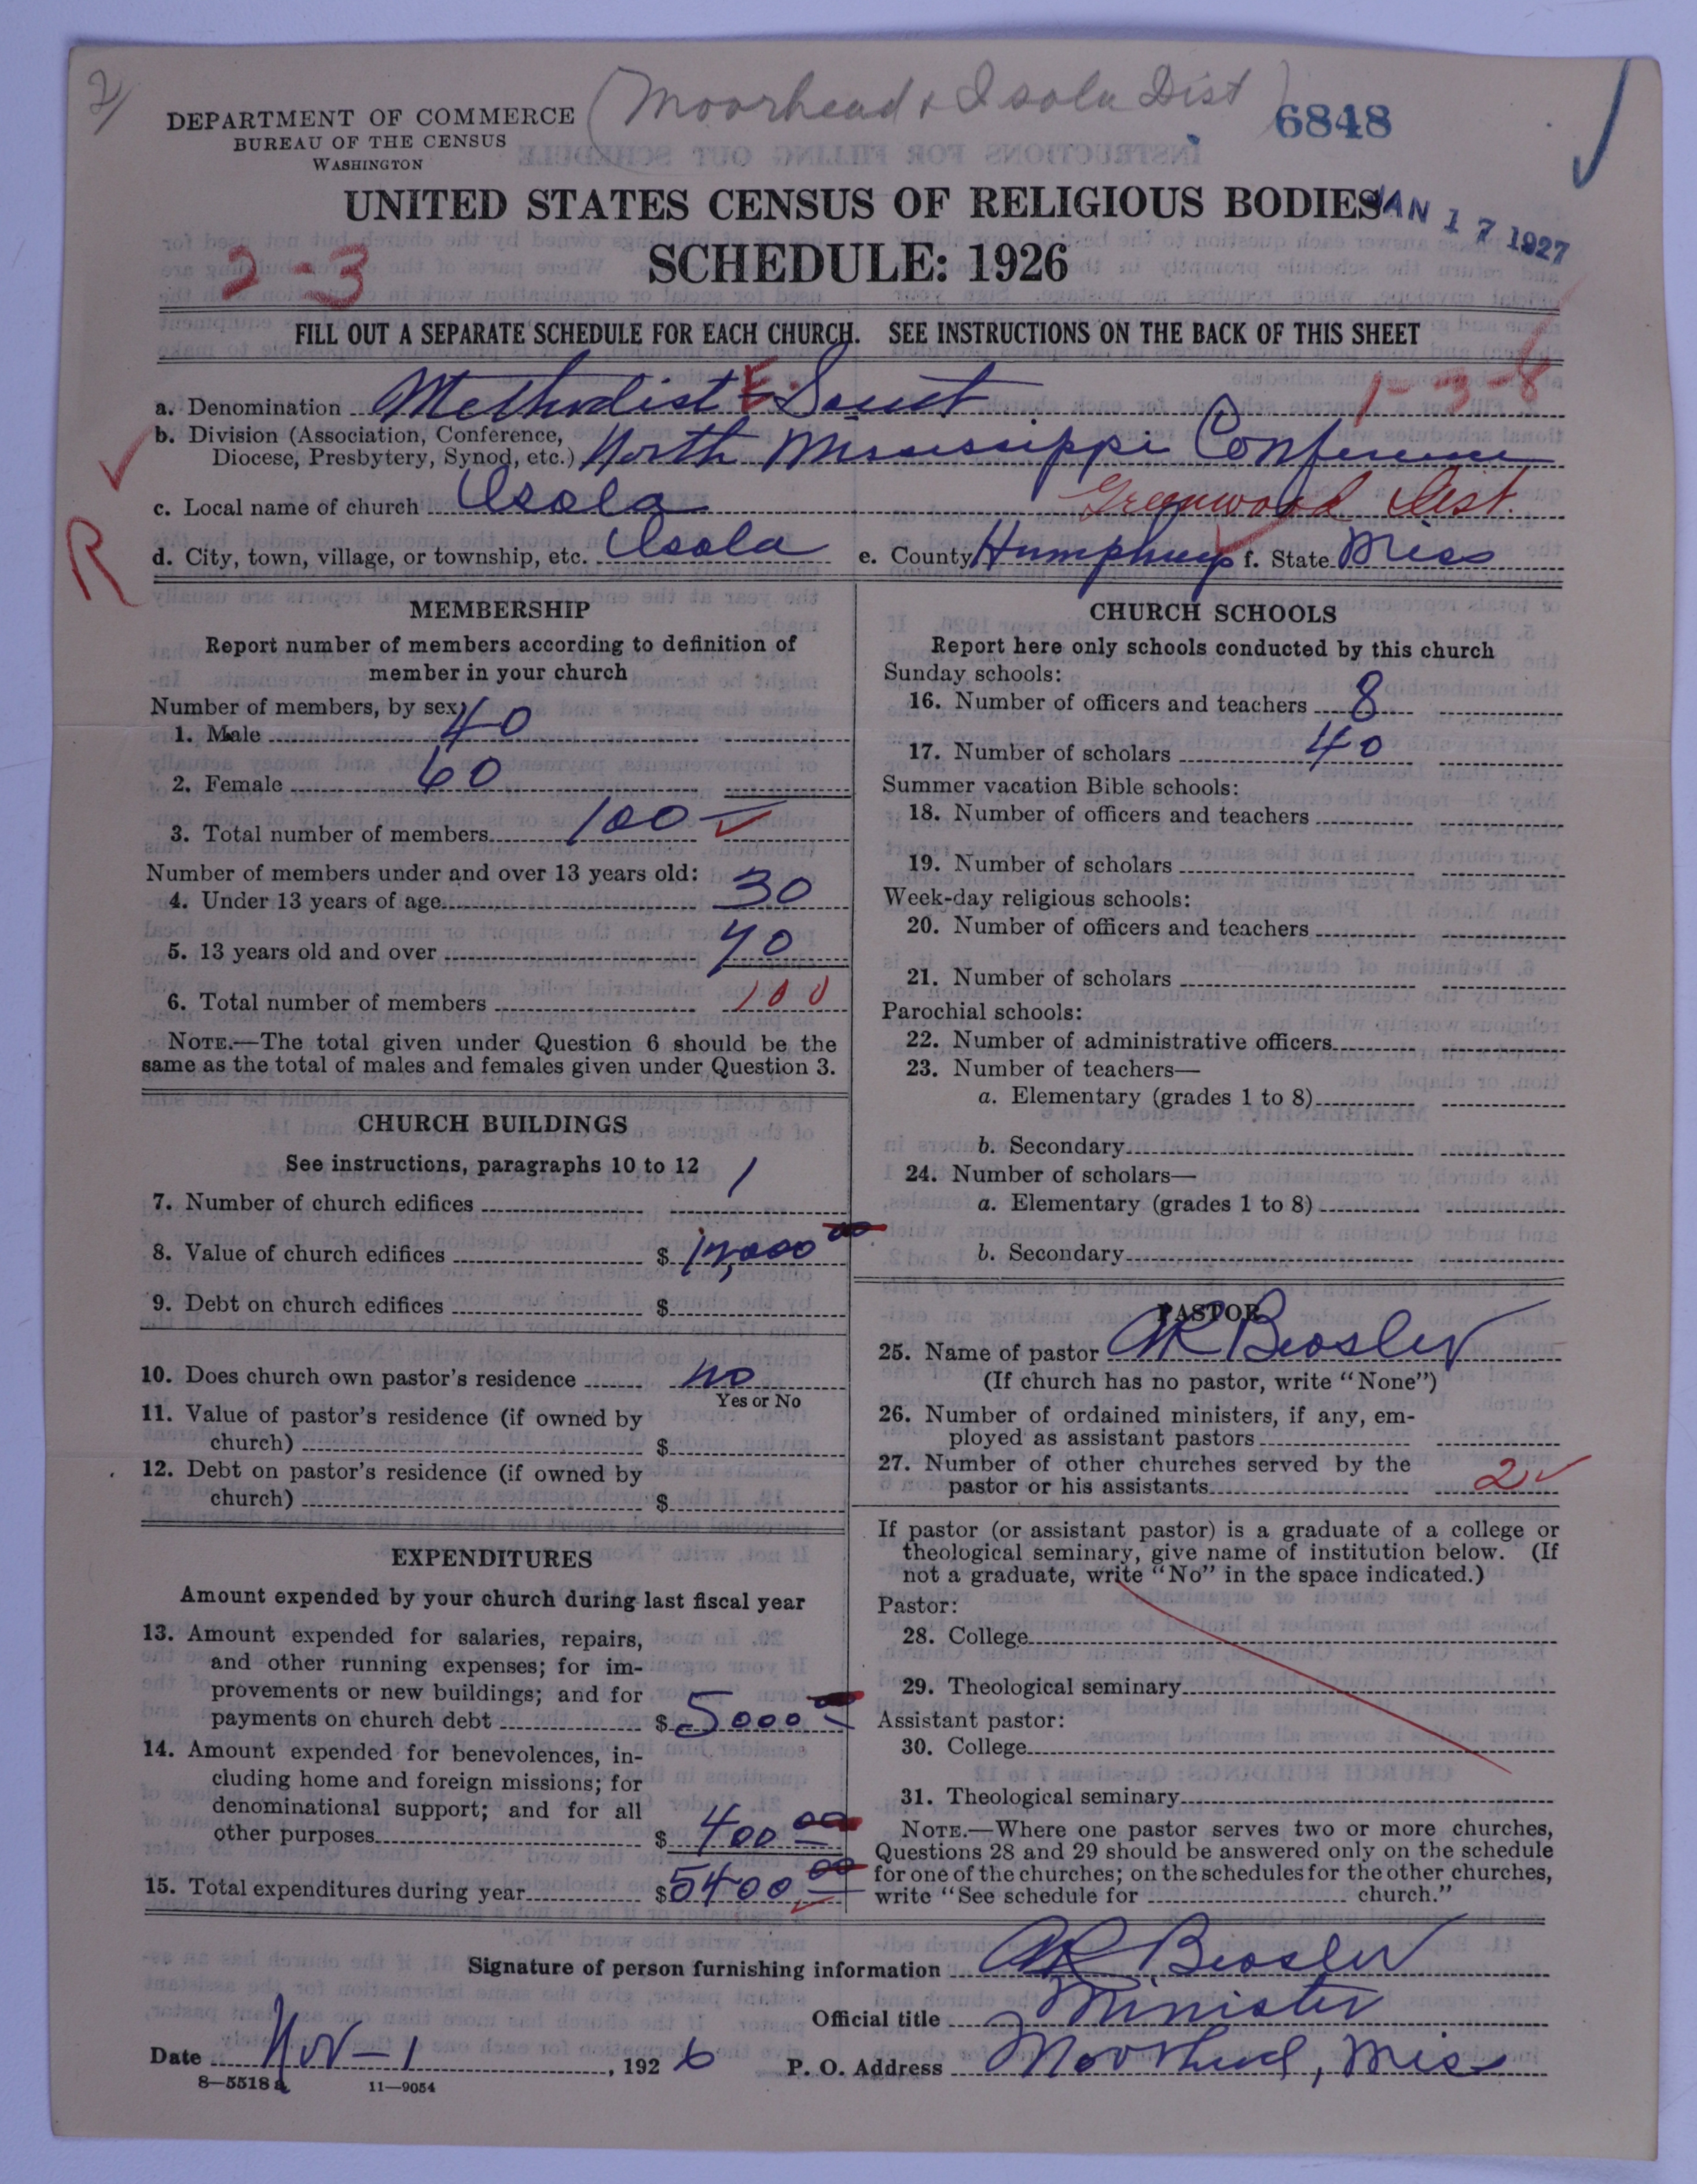 2/
(Moorhead & Isola Dist)
6848
DEPARTMENT OF COMMERCE
BUREAU OF THE CENSUS
WASHINGTON
UNITED STATES CENSUS OF RELIGIOUS BODIES
JAN 17 1927
2-3
SCHEDULE: 1926
FILL OUT A SEPARATE SCHEDULE FOR EACH CHURCH. SEE INSTRUCTIONS ON THE BACK OF THIS SHEET
a. Denomination Methodist E. Sout 1-3-8
b. Division (Association, Conference, Diocese, Presbytery, Synod, etc.) North Mississippi Conference
c. Local name of church Isola Greenwood Dist.
R
d. City, town, village, or township, etc. Isola e. County Humphreys f. State Miss
MEMBERSHIP
Report number of members according to definition of
member in your church
Number of members, by sex:
1. Male 40
2. Female 60
3. Total number of members 100
Number of members under and over 13 years old:
4. Under 13 years of age 30
5. 13 years old and over 70
6. Total number of members 100
NOTE.—The total given under Question 6 should be the
same as the total of males and females given under Question 3.
CHURCH BUILDINGS
See instructions, paragraphs 10 to 12
7. Number of church edifices 1
8. Value of church edifices $
9. Debt on church edifices $
10. Does church own pastor's residence no
Yes or No
11. Value of pastor's residence (if owned by
church) $
12. Debt on pastor's residence (if owned by
church) $
EXPENDITURES
Amount expended by your church during last fiscal year
13. Amount expended for salaries, repairs,
and other running expenses; for im-
provements or new buildings; and for
payments on church debt $ 5000
14. Amount expended for benevolences, in-
cluding home and foreign missions; for
denominational support; and for all
other purposes $ 400 00
15. Total expenditures during year $ 5400 00
CHURCH SCHOOLS
Report here only schools conducted by this church
Sunday schools:
16. Number of officers and teachers 8
17. Number of scholars 40
Summer vacation Bible schools:
18. Number of officers and teachers
19. Number of scholars
Week-day religious schools:
20. Number of officers and teachers
21. Number of scholars
Parochial schools:
22. Number of administrative officers
23. Number of teachers—
a. Elementary (grades 1 to 8)
b. Secondary
24. Number of scholars—
a. Elementary (grades 1 to 8)
b. Secondary
PASTOR
25. Name of pastor AR Beasley
(If church has no pastor, write "None")
26. Number of ordained ministers, if any, em-
ployed as assistant pastors
27. Number of other churches served by the
pastor or his assistants 2
If pastor (or assistant pastor) is a graduate of a college or
theological seminary, give name of institution below. (If
not a graduate, write "No" in the space indicated.)
Pastor:
28. College
29. Theological seminary
Assistant pastor:
30. College
31. Theological seminary
NOTE.—Where one pastor serves two or more churches,
Questions 28 and 29 should be answered only on the schedule
for one of the churches; on the schedules for the other churches,
write "See schedule for church."
Signature of person furnishing information AR Beasley
Official title Minister
Date Nov-1, 1926 P. O. Address Moorhead, Miss
8—5518a 11—9054